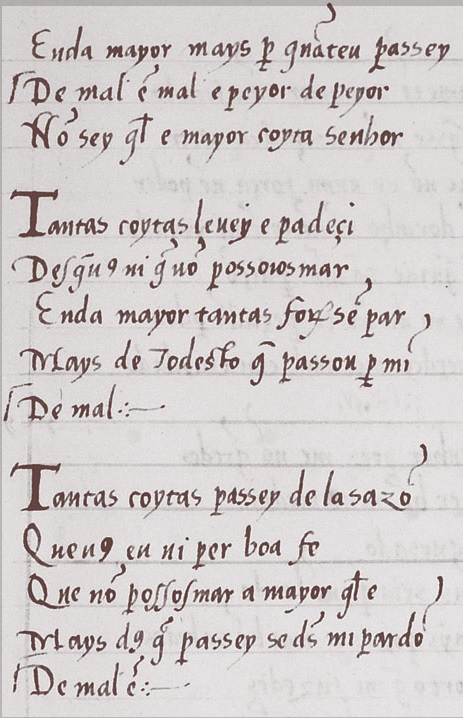 Enda mayor mays ꝑ quãteu passey
De mal ẽ mal e peyor de peyor
Nõ sey q̃l e mayor coyta senhor
Tantas coytas levey e padeçi
Desq̃uꝯ ui q̃ nõ possoiosmar
Enda mayor tantas forõ sẽ par
Mays de todesto q̃ passou ꝑ mi
De mal
Tantas coytas passey de lasazõ
Queuꝯ eu ui per boa fe
Que nõ possosmar a mayor q̃l e
Mays dꝯ q̃ passey se ds̃ mi pardõ
De mal ẽ